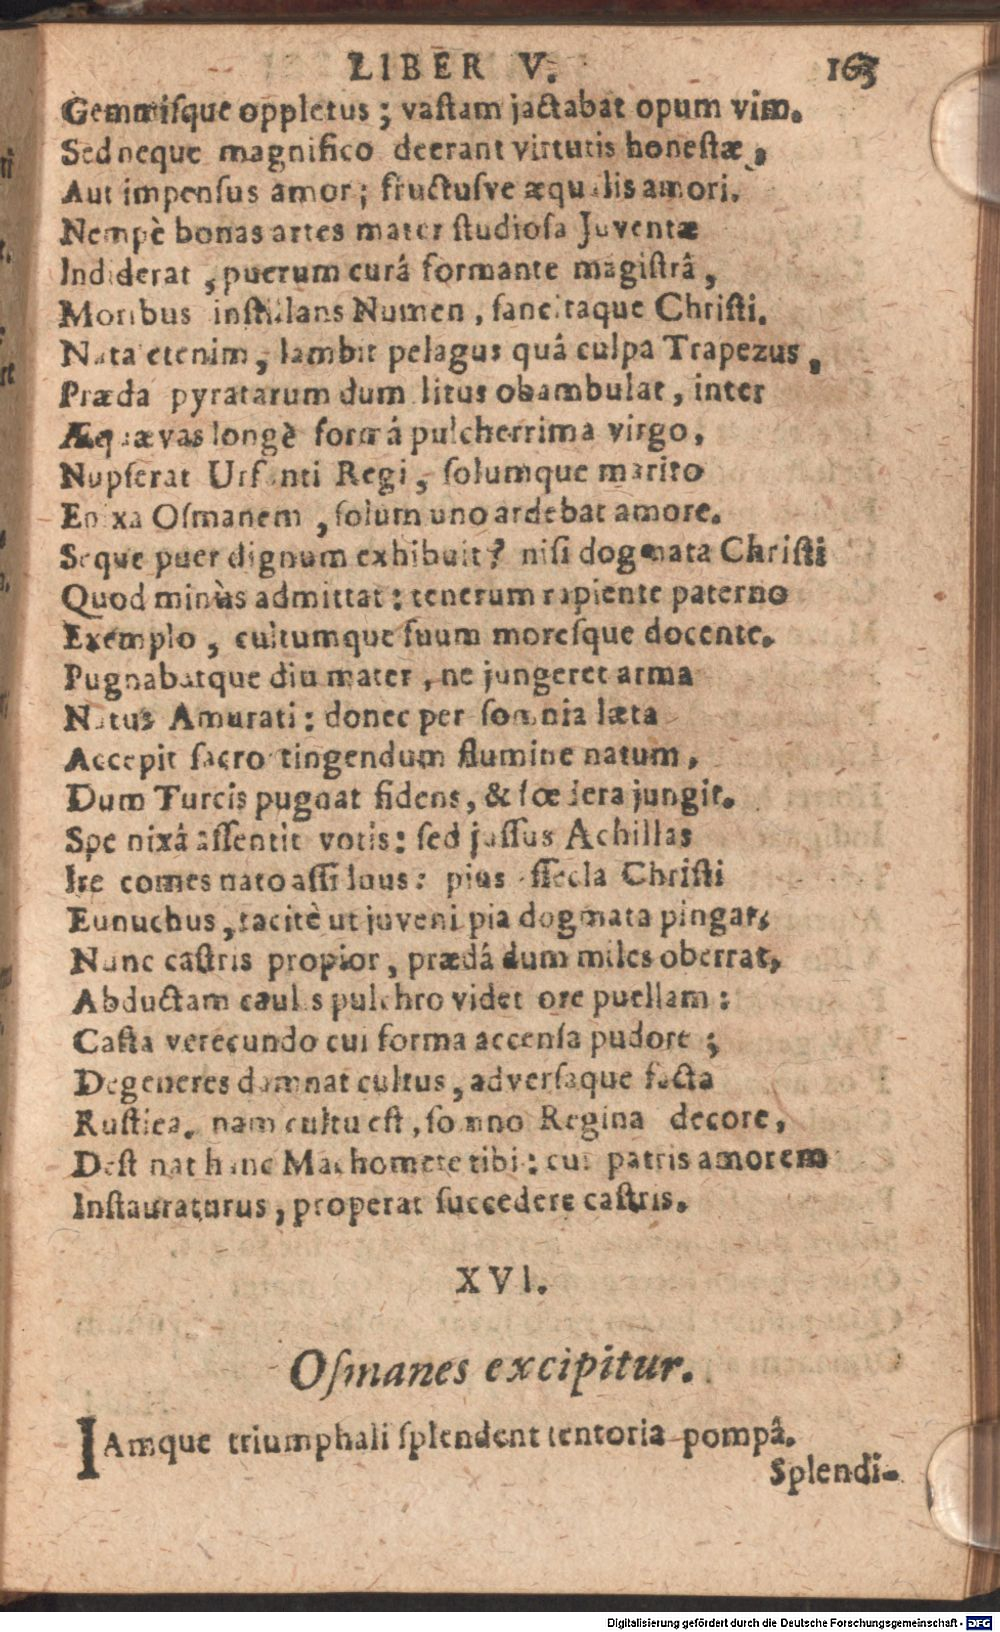 LIBER V. 163
Gemmisque oppletus ; vastam jactabat opum vim.
Sed neque magnifico deerant virtutis honestæ,
Aut impensus amor; fructusve æqualis amori.
Nempè bonas artes mater studiosa Juventæ
Indiderat , puerum curâ formante magistrâ ,
Moribus instillans Numen , sancitaque Christi.
Nata etenim, lambit pelagus quâ culpa Trapezus ,
Præda pyratarum dum litus obambulat , inter
Æquævas longè formâ pulcherrima virgo,
Nupserat Ursanti Regi, solumque marito
Enixa Osmanem , solum uno ardebat amore.
Seque puer dignum exhibuit? nisi dogmata Christi
Quod minùs admittat : tenerum rapiente paterno
Exemplo , cultumque suum moresque docente.
Pugnabatque diu mater , ne jungeret arma
Natus Amurati : donec per somnia læta
Accepit sacro tingendum flumine natum ,
Dum Turcis pugnat fidens, & fœdera jungit.
Spe nixâ assentit votis: sed jussus Achillas
Ire comes nato assiduus: pius assecla Christi
Eunuchus, tacitè ut juveni pia dogmata pingat,
Nunc castris propior , prædâ dum miles oberrat,
Abductam caulis pulchro videt ore puellam :
Casta verecundo cui forma accensa pudore ;
Degeneres damnat cultus, adversaque facta
Rustica. nam cultu est, somno Regina decore,
Destinat hanc Machomete tibi: cui patris amorem
Instauraturus, properat succedere castris.
XVI.
Osmanes excipitur.
IAmque triumphali splendent tentoria pompâ.
Splendi-
Digitalisierung gefördert durch die Deutsche Forschungsgemeinschaft - DFG